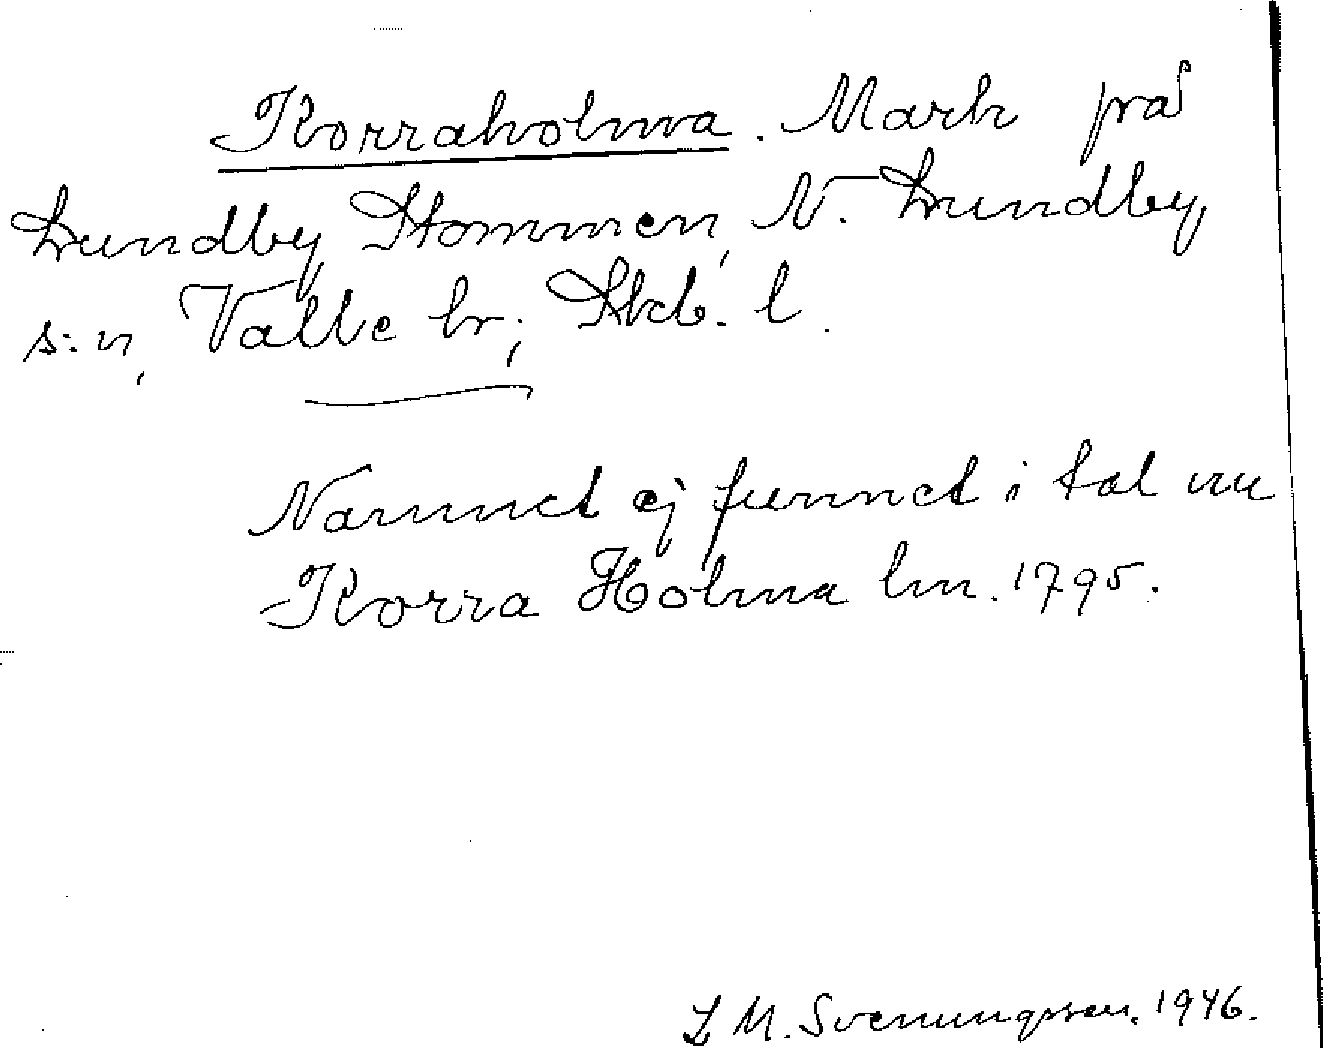 Korraholma. Mark på
Lundby Stommen, N. Lundby
s:n, Valle hr; Skb. l.
Namnet ej funnet i tal nu
Korra Holma lm. 1795.
L M. Svenungsson. 1946.